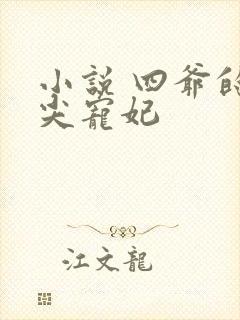 小說 四爺的
尖寵妃
江文龍